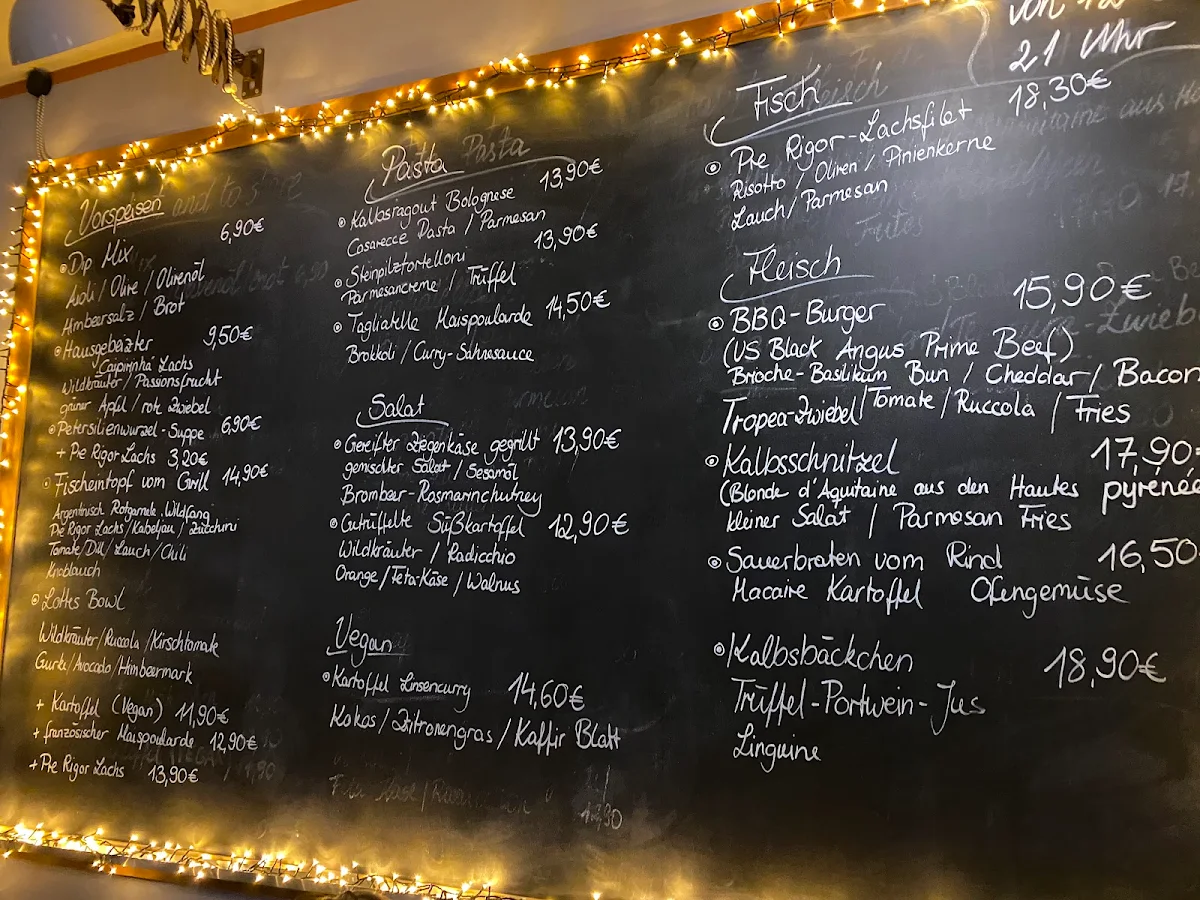 Vorspeisen
Dip Mix 6,90€
Aioli / Olive / Olivenöl
Himbeersalz / Brot
Hausgebeizter 9,50€
Caipirinha Lachs
Wildkräuter / Passionsfrucht
grüner Apfel / rote Zwiebel
Petersilienwurzel-Suppe 6,90€
+ Pre Rigor Lachs 3,20€
Fischeintopf vom Grill 14,90€
Argentinisch Rotgarnele, Wildfang
Pre Rigor Lachs / Kabeljau / Zucchini
Tomate / Dill / Lauch / Chili
Knoblauch
Lottes Bowl
Wildkräuter / Ruccola / Kirschtomate
Gurke / Avocado / Himbeermark
+ Kartoffel (Vegan) 11,90€
+ französischer Maispoularde 12,90€
+ Pre Rigor Lachs 13,90€
Pasta
Kalbsragout Bolognese 13,90€
Casarecce Pasta / Parmesan
Steinpilztortelloni 13,90€
Parmesancreme / Trüffel
Tagliatelle Maispoularde 14,50€
Brokkoli / Curry-Sahnesauce
Salat
Gereifter Ziegenkäse gegrillt 13,90€
gemischter Salat / Sesamöl
Brombeer-Rosmarinchutney
Getrüffelte Süßkartoffel 12,90€
Wildkräuter / Radicchio
Orange / Feta-Käse / Walnus
Vegan
Kartoffel Linsencurry 14,60€
Kokos / Zitronengras / Kaffir Blatt
von 12
21 Uhr
Fisch
Pre Rigor-Lachsfilet 18,30€
Risotto / Oliven / Pinienkerne
Lauch / Parmesan
Fleisch
BBQ-Burger 15,90€
(US Black Angus Prime Beef)
Brioche-Basilikum Bun / Cheddar / Bacon
Tropea-Zwiebel / Tomate / Ruccola / Fries
Kalbsschnitzel 17,90
(Blonde d'Aquitaine aus den Hautes pyrénée
kleiner Salat / Parmesan Fries
Sauerbraten vom Rind 16,50
Macaire Kartoffel Ofengemüse
Kalbsbäckchen 18,90€
Trüffel-Portwein-Jus
Linguine